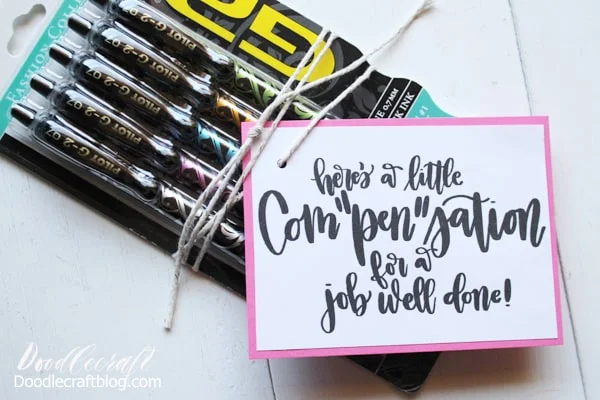 FASHION COLLE
PILOT G-2 07
PILOT G-2 07
PILOT G-2 07
PILOT G-2 07
PILOT G-2 07
G2
0.7MM
INK
#1
here's a little
Com"pen"sation
for a
job well done!
Doodlecraft
Doodlecraftblog.com